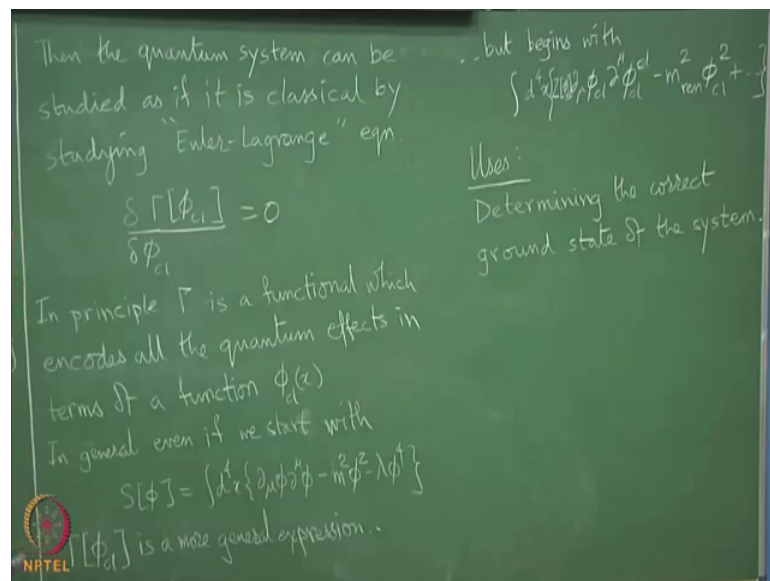 Then the quantum system can be
studied as if it is classical by
studying "Euler-Lagrange" eqn
δ Γ[ϕ_cl] / δϕ_cl = 0
In principle Γ is a functional which
encodes all the quantum effects in
terms of a function ϕ_cl(x)
In general even if we start with
S[ϕ] = ∫d⁴x{∂_μϕ∂^μϕ - m²ϕ² - λϕ⁴}
Γ[ϕ_cl] is a more general expression..
...but begins with
∫d⁴x{ ∂_μϕ_cl ∂^μϕ_cl - m²_ren ϕ²_cl + ...}
Uses:
Determining the correct
ground state of the system.
NPTEL